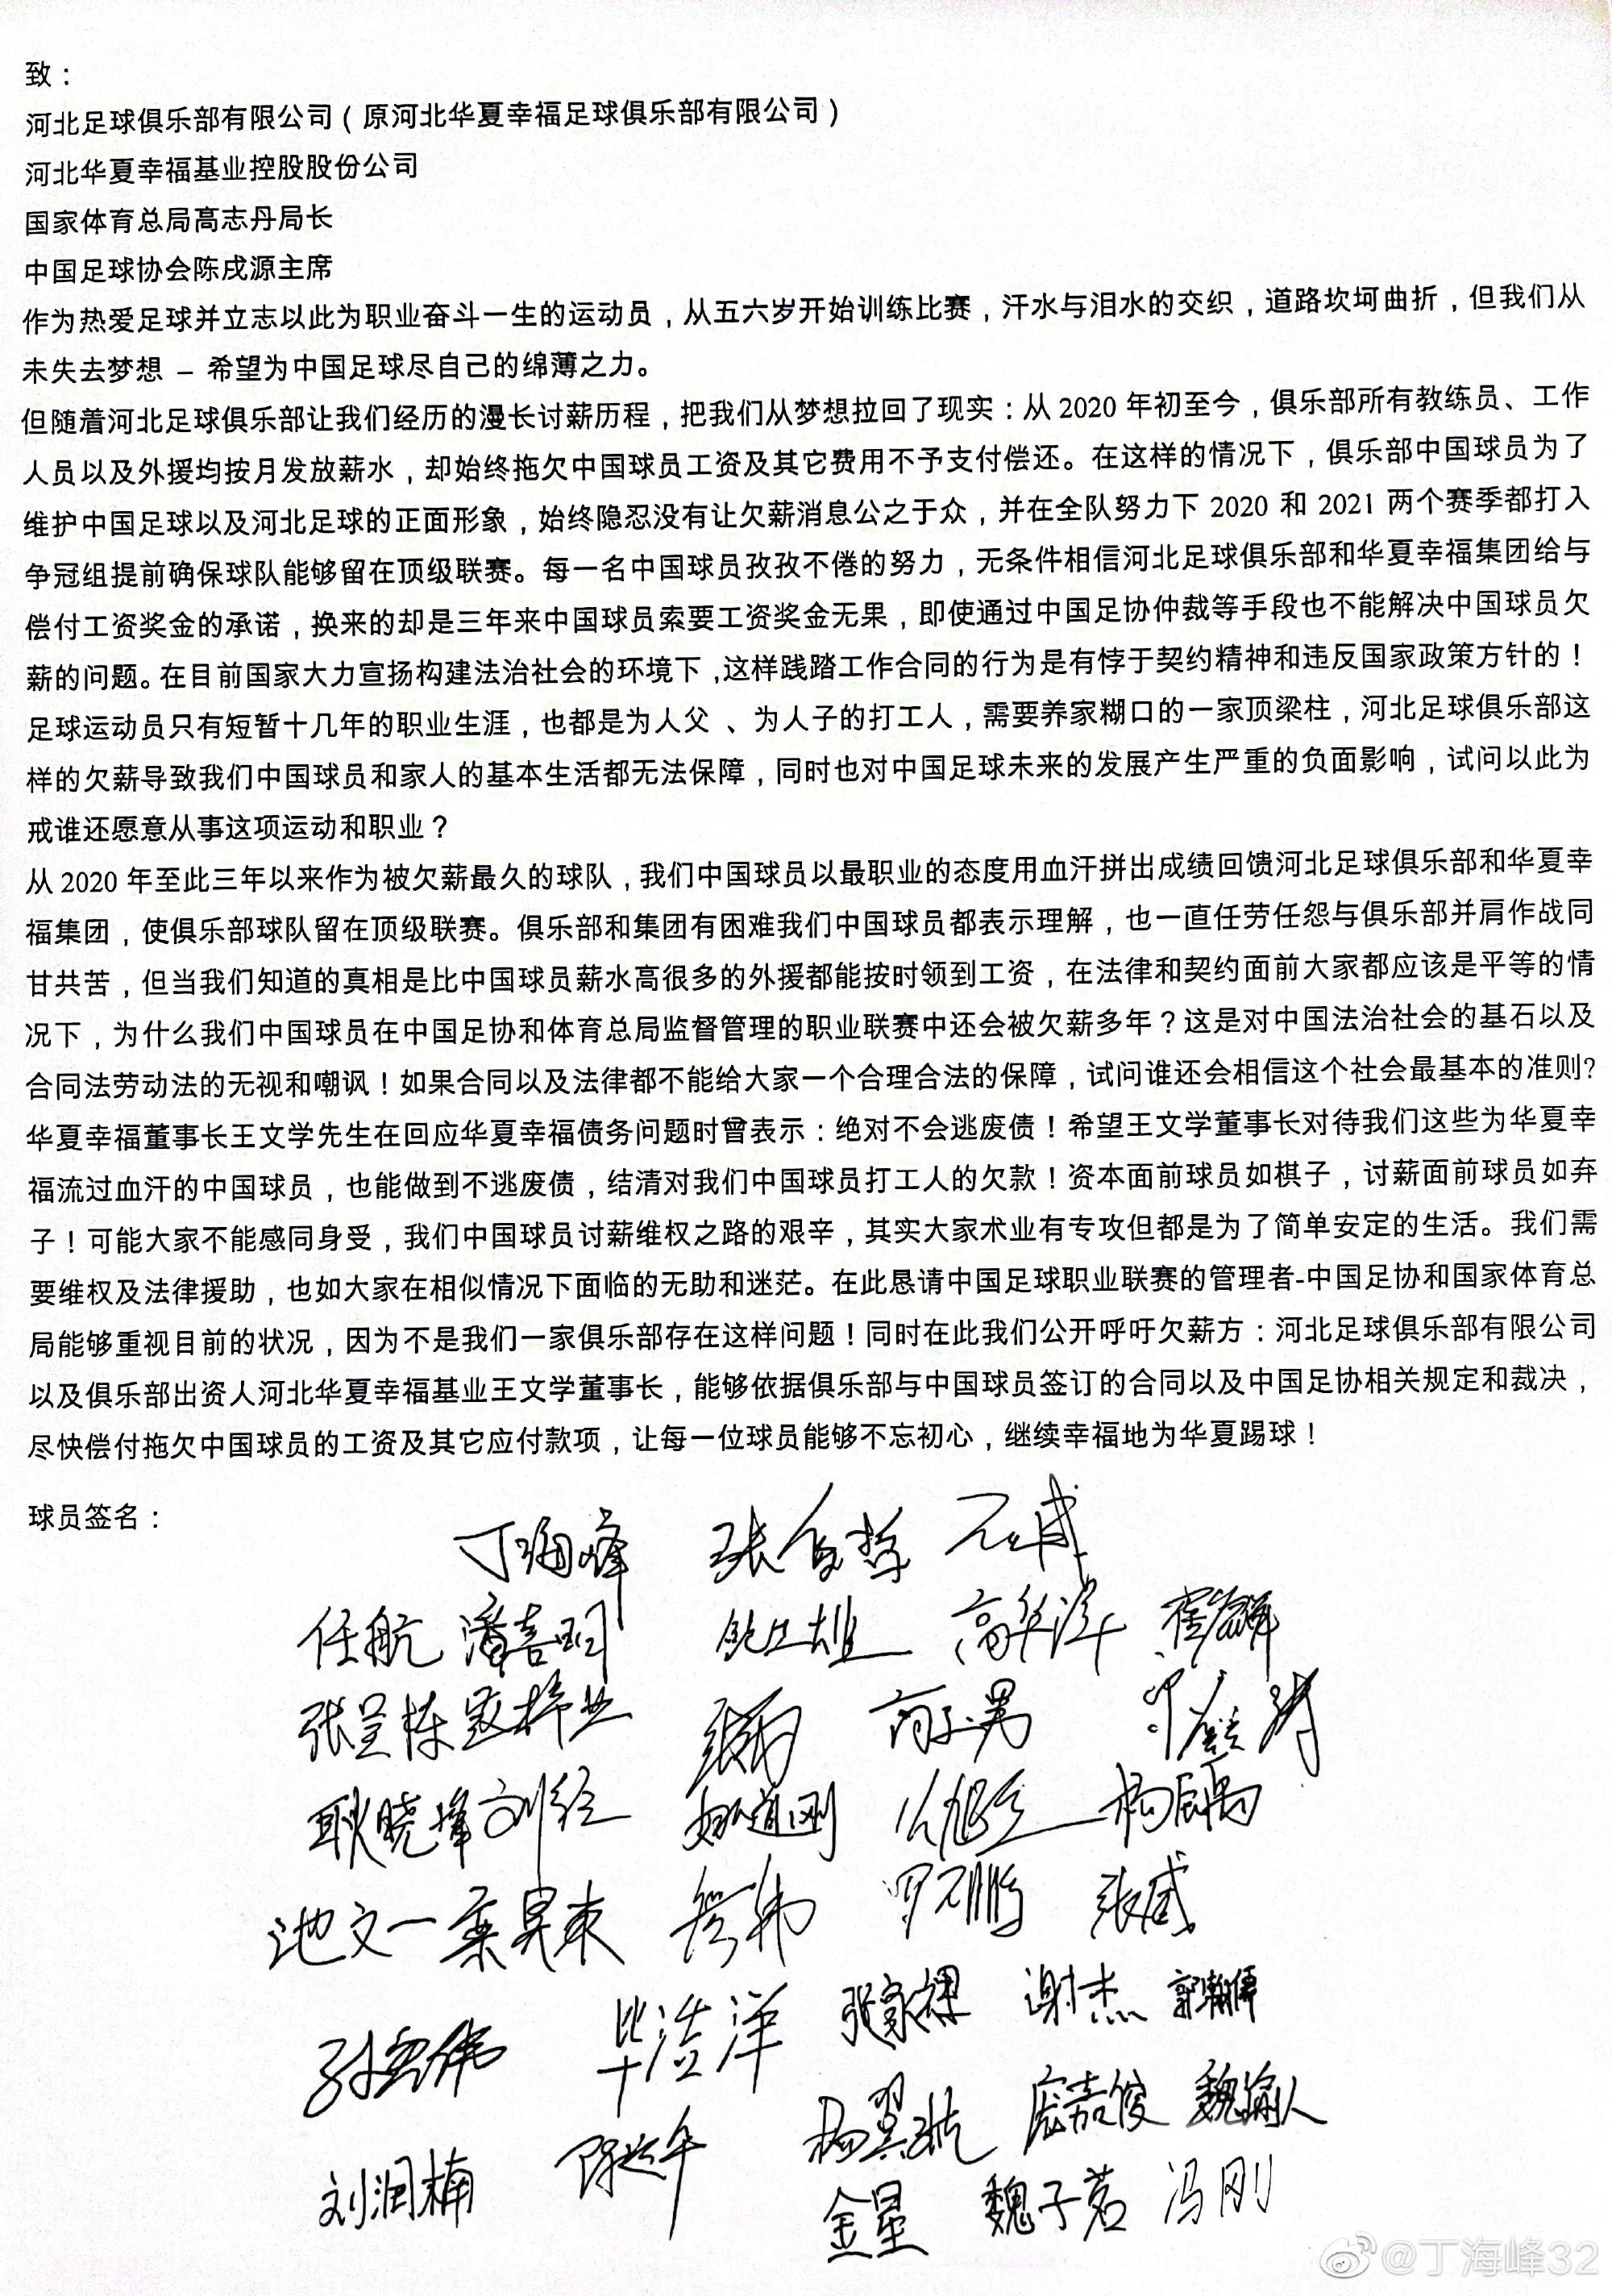 致：
河北足球俱乐部有限公司（原河北华夏幸福足球俱乐部有限公司）
河北华夏幸福基业控股股份公司
国家体育总局高志丹局长
中国足球协会陈戌源主席
作为热爱足球并立志以此为职业奋斗一生的运动员，从五六岁开始训练比赛，汗水与泪水的交织，道路坎坷曲折，但我们从
未失去梦想 – 希望为中国足球尽自己的绵薄之力。
但随着河北足球俱乐部让我们经历的漫长讨薪历程，把我们从梦想拉回了现实：从 2020 年初至今，俱乐部所有教练员、工作
人员以及外援均按月发放薪水，却始终拖欠中国球员工资及其它费用不予支付偿还。在这样的情况下，俱乐部中国球员为了
维护中国足球以及河北足球的正面形象，始终隐忍没有让欠薪消息公之于众，并在全队努力下 2020 和 2021 两个赛季都打入
争冠组提前确保球队能够留在顶级联赛。每一名中国球员孜孜不倦的努力，无条件相信河北足球俱乐部和华夏幸福集团给与
偿付工资奖金的承诺，换来的却是三年来中国球员索要工资奖金无果，即使通过中国足协仲裁等手段也不能解决中国球员欠
薪的问题。在目前国家大力宣扬构建法治社会的环境下,这样践踏工作合同的行为是有悖于契约精神和违反国家政策方针的！
足球运动员只有短暂十几年的职业生涯，也都是为人父 、为人子的打工人，需要养家糊口的一家顶梁柱，河北足球俱乐部这
样的欠薪导致我们中国球员和家人的基本生活都无法保障，同时也对中国足球未来的发展产生严重的负面影响，试问以此为
戒谁还愿意从事这项运动和职业？
从 2020 年至此三年以来作为被欠薪最久的球队，我们中国球员以最职业的态度用血汗拼出成绩回馈河北足球俱乐部和华夏幸
福集团，使俱乐部球队留在顶级联赛。俱乐部和集团有困难我们中国球员都表示理解，也一直任劳任怨与俱乐部并肩作战同
甘共苦，但当我们知道的真相是比中国球员薪水高很多的外援都能按时领到工资，在法律和契约面前大家都应该是平等的情
况下，为什么我们中国球员在中国足协和体育总局监督管理的职业联赛中还会被欠薪多年？这是对中国法治社会的基石以及
合同法劳动法的无视和嘲讽！如果合同以及法律都不能给大家一个合理合法的保障，试问谁还会相信这个社会最基本的准则?
华夏幸福董事长王文学先生在回应华夏幸福债务问题时曾表示：绝对不会逃废债！希望王文学董事长对待我们这些为华夏幸
福流过血汗的中国球员，也能做到不逃废债，结清对我们中国球员打工人的欠款！资本面前球员如棋子，讨薪面前球员如弃
子！可能大家不能感同身受，我们中国球员讨薪维权之路的艰辛，其实大家术业有专攻但都是为了简单安定的生活。我们需
要维权及法律援助，也如大家在相似情况下面临的无助和迷茫。在此恳请中国足球职业联赛的管理者-中国足协和国家体育总
局能够重视目前的状况，因为不是我们一家俱乐部存在这样问题！同时在此我们公开呼吁欠薪方：河北足球俱乐部有限公司
以及俱乐部出资人河北华夏幸福基业王文学董事长，能够依据俱乐部与中国球员签订的合同以及中国足协相关规定和裁决，
尽快偿付拖欠中国球员的工资及其它应付款项，让每一位球员能够不忘初心，继续幸福地为华夏踢球！
球员签名：
丁海峰
任航 潘喜明 高华泽 崔麟
张呈栋 寇梓业
耿晓峰 刘经 杨启禹
池文一 栾昊东 罗石鹏 张威
毕浩洋 张家祺 谢杰
杨翼航 庞嘉俊 魏瑜人
刘润楠 金星 魏子茗 冯刚
@丁海峰32